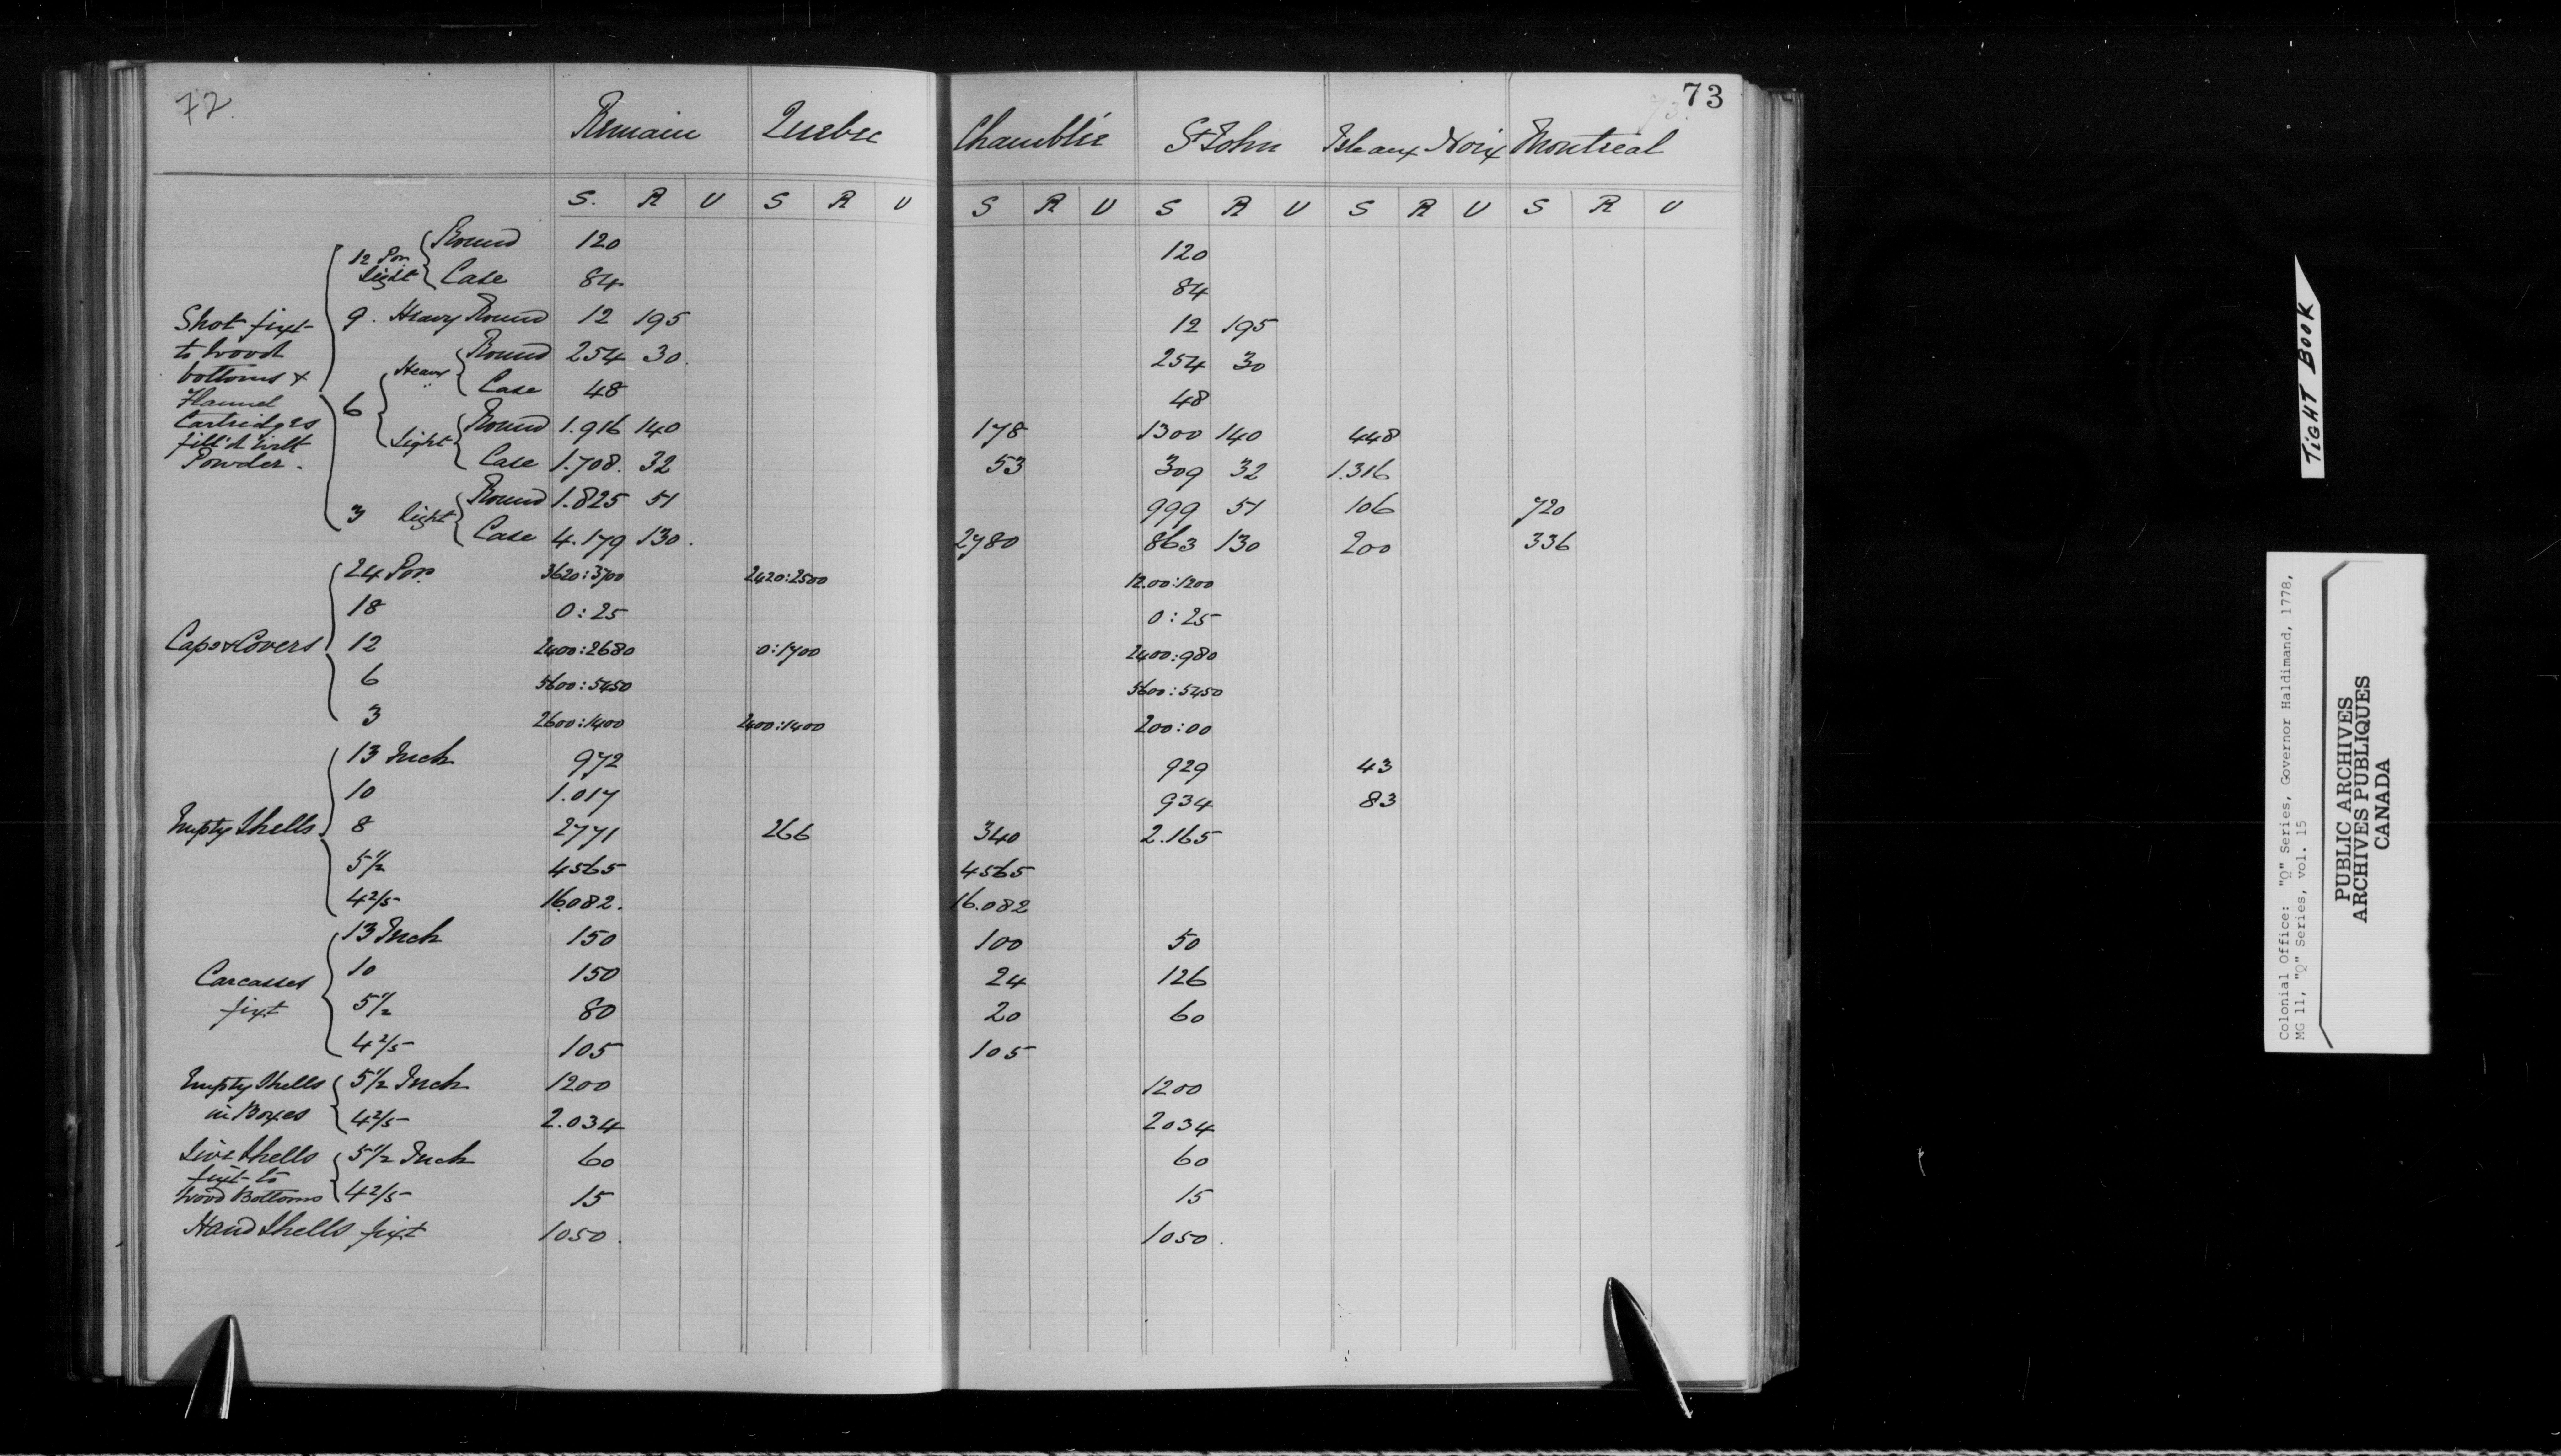 72.
73
Remain Quebec Chamblie St John Isle aux Noix Montreal
S. R U S R U S R U S R U S R U S R U
Shot fixt to wood bottoms & Flannel Cartridges fill'd with Powder.
12 Por. light Round 120 120
Case 84 84
9. Heavy Round 12 195 12 195
6 Heavy Round 254 30. 254 30
Case 48 48
Light Round 1.916 140 178 1300 140 448
Case 1.708. 32 53 309 32 1.316
3 light Round 1.825 51 999 51 106 720
Case 4.179 130. 2780 863 130 200 336
Caps & Covers
24 Por. 3620:3700 2420:2500 1200:1200
18 0:25 0:25
12 2400:2680 0:1700 2400:980
6 5600:5450 5600:5450
3 2600:1400 2400:1400 200:00
Empty Shells
13 Inch 972 929 43
10 1.017 934 83
8 2771 266 340 2.165
5 1/2 4565 4565
4 2/5 16.082. 16.082
Carcasses fixt
13 Inch 150 100 50
10 150 24 126
5 1/2 80 20 60
4 2/5 105 105
Empty Shells in Boxes
5 1/2 Inch 1200 1200
4 2/5 2.034 2034
Live Shells fixt to wood Bottoms
5 1/2 Inch 60 60
4 2/5 15 15
Hand Shells fixt 1050. 1050.
TIGHT BOOK
Colonial Office: "Q" Series, Governor Haldimand, 1778,
MG 11, "Q" Series, vol. 15
PUBLIC ARCHIVES
ARCHIVES PUBLIQUES
CANADA